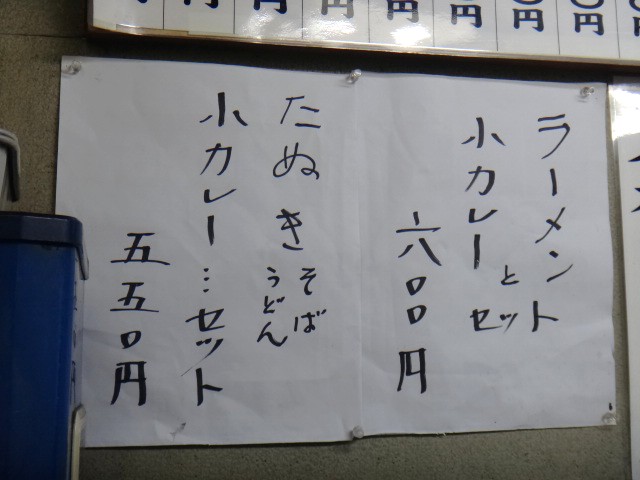 ラーメン
小カレー
と
セット
六〇〇円
たぬき
そば
うどん
小カレー…セット
五五〇円
円
円
円
円
円
円
0円
0円